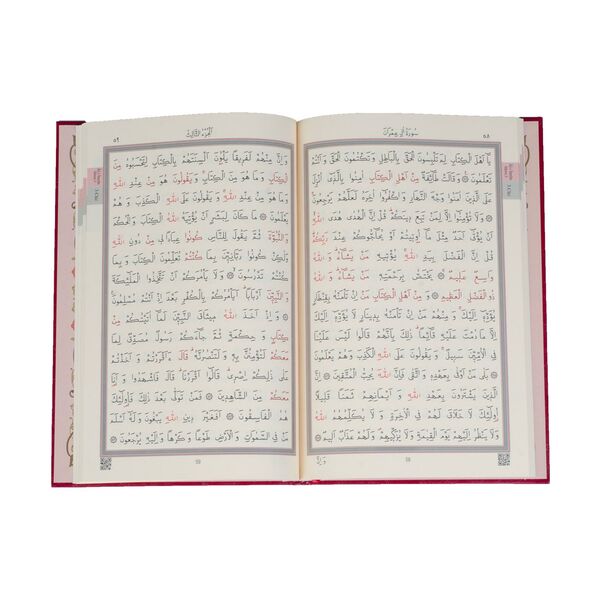 سُورَةُ آلِ عِمْرَانَ
٥٨
يَا أَهْلَ الْكِتَابِ لِمَ تَلْبِسُونَ الْحَقَّ بِالْبَاطِلِ وَتَكْتُمُونَ الْحَقَّ وَأَنْتُمْ
تَعْلَمُونَ ۝ وَقَالَتْ طَائِفَةٌ مِنْ أَهْلِ الْكِتَابِ آمِنُوا بِالَّذِي أُنْزِلَ
عَلَى الَّذِينَ آمَنُوا وَجْهَ النَّهَارِ وَاكْفُرُوا آخِرَهُ لَعَلَّهُمْ يَرْجِعُونَ ۝
وَلَا تُؤْمِنُوا إِلَّا لِمَنْ تَبِعَ دِينَكُمْ قُلْ إِنَّ الْهُدَى هُدَى اللّٰهِ
أَنْ يُؤْتَى أَحَدٌ مِثْلَ مَا أُوتِيتُمْ أَوْ يُحَاجُّوكُمْ عِنْدَ رَبِّكُمْ
قُلْ إِنَّ الْفَضْلَ بِيَدِ اللّٰهِ يُؤْتِيهِ مَنْ يَشَاءُ وَاللّٰهُ
وَاسِعٌ عَلِيمٌ ۝ يَخْتَصُّ بِرَحْمَتِهِ مَنْ يَشَاءُ وَاللّٰهُ
ذُو الْفَضْلِ الْعَظِيمِ ۝ وَمِنْ أَهْلِ الْكِتَابِ مَنْ إِنْ تَأْمَنْهُ بِقِنْطَارٍ
يُؤَدِّهِ إِلَيْكَ وَمِنْهُمْ مَنْ إِنْ تَأْمَنْهُ بِدِينَارٍ لَا يُؤَدِّهِ إِلَيْكَ
إِلَّا مَا دُمْتَ عَلَيْهِ قَائِمًا ذٰلِكَ بِأَنَّهُمْ قَالُوا لَيْسَ عَلَيْنَا
فِي الْأُمِّيِّينَ سَبِيلٌ وَيَقُولُونَ عَلَى اللّٰهِ الْكَذِبَ وَهُمْ يَعْلَمُونَ
۝ بَلَى مَنْ أَوْفَى بِعَهْدِهِ وَاتَّقَى فَإِنَّ اللّٰهَ يُحِبُّ الْمُتَّقِينَ ۝ إِنَّ
الَّذِينَ يَشْتَرُونَ بِعَهْدِ اللّٰهِ وَأَيْمَانِهِمْ ثَمَنًا قَلِيلًا
أُولٰئِكَ لَا خَلَاقَ لَهُمْ فِي الْآخِرَةِ وَلَا يُكَلِّمُهُمُ اللّٰهُ
وَلَا يَنْظُرُ إِلَيْهِمْ يَوْمَ الْقِيٰمَةِ وَلَا يُزَكِّيهِمْ وَلَهُمْ عَذَابٌ أَلِيمٌ ۝
وَإِنَّ
اَلْجُزْءُ الثَّالِثُ
٥٩
وَإِنَّ مِنْهُمْ لَفَرِيقًا يَلْوُونَ أَلْسِنَتَهُمْ بِالْكِتَابِ لِتَحْسَبُوهُ مِنَ
الْكِتَابِ وَمَا هُوَ مِنَ الْكِتَابِ وَيَقُولُونَ هُوَ مِنْ عِنْدِ اللّٰهِ
وَمَا هُوَ مِنْ عِنْدِ اللّٰهِ وَيَقُولُونَ عَلَى اللّٰهِ الْكَذِبَ وَهُمْ
يَعْلَمُونَ ۝ مَا كَانَ لِبَشَرٍ أَنْ يُؤْتِيَهُ اللّٰهُ الْكِتَابَ وَالْحُكْمَ
وَالنُّبُوَّةَ ثُمَّ يَقُولَ لِلنَّاسِ كُونُوا عِبَادًا لِي مِنْ دُونِ اللّٰهِ
وَلٰكِنْ كُونُوا رَبَّانِيِّينَ بِمَا كُنْتُمْ تُعَلِّمُونَ الْكِتَابَ وَبِمَا
كُنْتُمْ تَدْرُسُونَ ۝ وَلَا يَأْمُرَكُمْ أَنْ تَتَّخِذُوا الْمَلٰئِكَةَ
وَالنَّبِيِّينَ أَرْبَابًا أَيَأْمُرُكُمْ بِالْكُفْرِ بَعْدَ إِذْ أَنْتُمْ مُسْلِمُونَ
۝ وَإِذْ أَخَذَ اللّٰهُ مِيثَاقَ النَّبِيِّينَ لَمَا آتَيْتُكُمْ مِنْ
كِتَابٍ وَحِكْمَةٍ ثُمَّ جَاءَكُمْ رَسُولٌ مُصَدِّقٌ لِمَا
مَعَكُمْ لَتُؤْمِنُنَّ بِهِ وَلَتَنْصُرُنَّهُ قَالَ أَأَقْرَرْتُمْ وَأَخَذْتُمْ
عَلَى ذٰلِكُمْ إِصْرِي قَالُوا أَقْرَرْنَا قَالَ فَاشْهَدُوا وَأَنَا
مَعَكُمْ مِنَ الشَّاهِدِينَ ۝ فَمَنْ تَوَلَّى بَعْدَ ذٰلِكَ فَأُولٰئِكَ
هُمُ الْفَاسِقُونَ ۝ أَفَغَيْرَ دِينِ اللّٰهِ يَبْغُونَ وَلَهُ أَسْلَمَ
مَنْ فِي السَّمٰوَاتِ وَالْأَرْضِ طَوْعًا وَكَرْهًا وَإِلَيْهِ يُرْجَعُونَ ۝